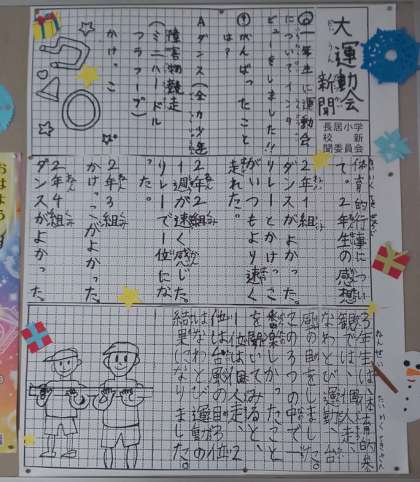 大運動会
新聞
長居小学
校新
聞委員会
一年生に運動会
についてインタ
ビューをしました!!
がんばったこと
は?
Aダンス(全力少年
障害物競走
(ミニハードル
フラフープ)
かけっこ
体育的行事につい
て。2年生の感想
2年1組
ダンスがよかった。
リレーとかけっこ
がいつもより速く
走れた。
2年2組
1週が速く感じた。
リレーで1位にな
った。
2年3組
かけっこがよかった。
2年4組
ダンスがよかった。
3年生は、体育的参
観では、個人走、
なわとび運動、台
風の目をしました。
この3つの中で一
番楽しかったこと
を聞いてみると、
1位は個人走、2
位は台風の目、3位
はなわとび運動の
結果になりました。
おはよう